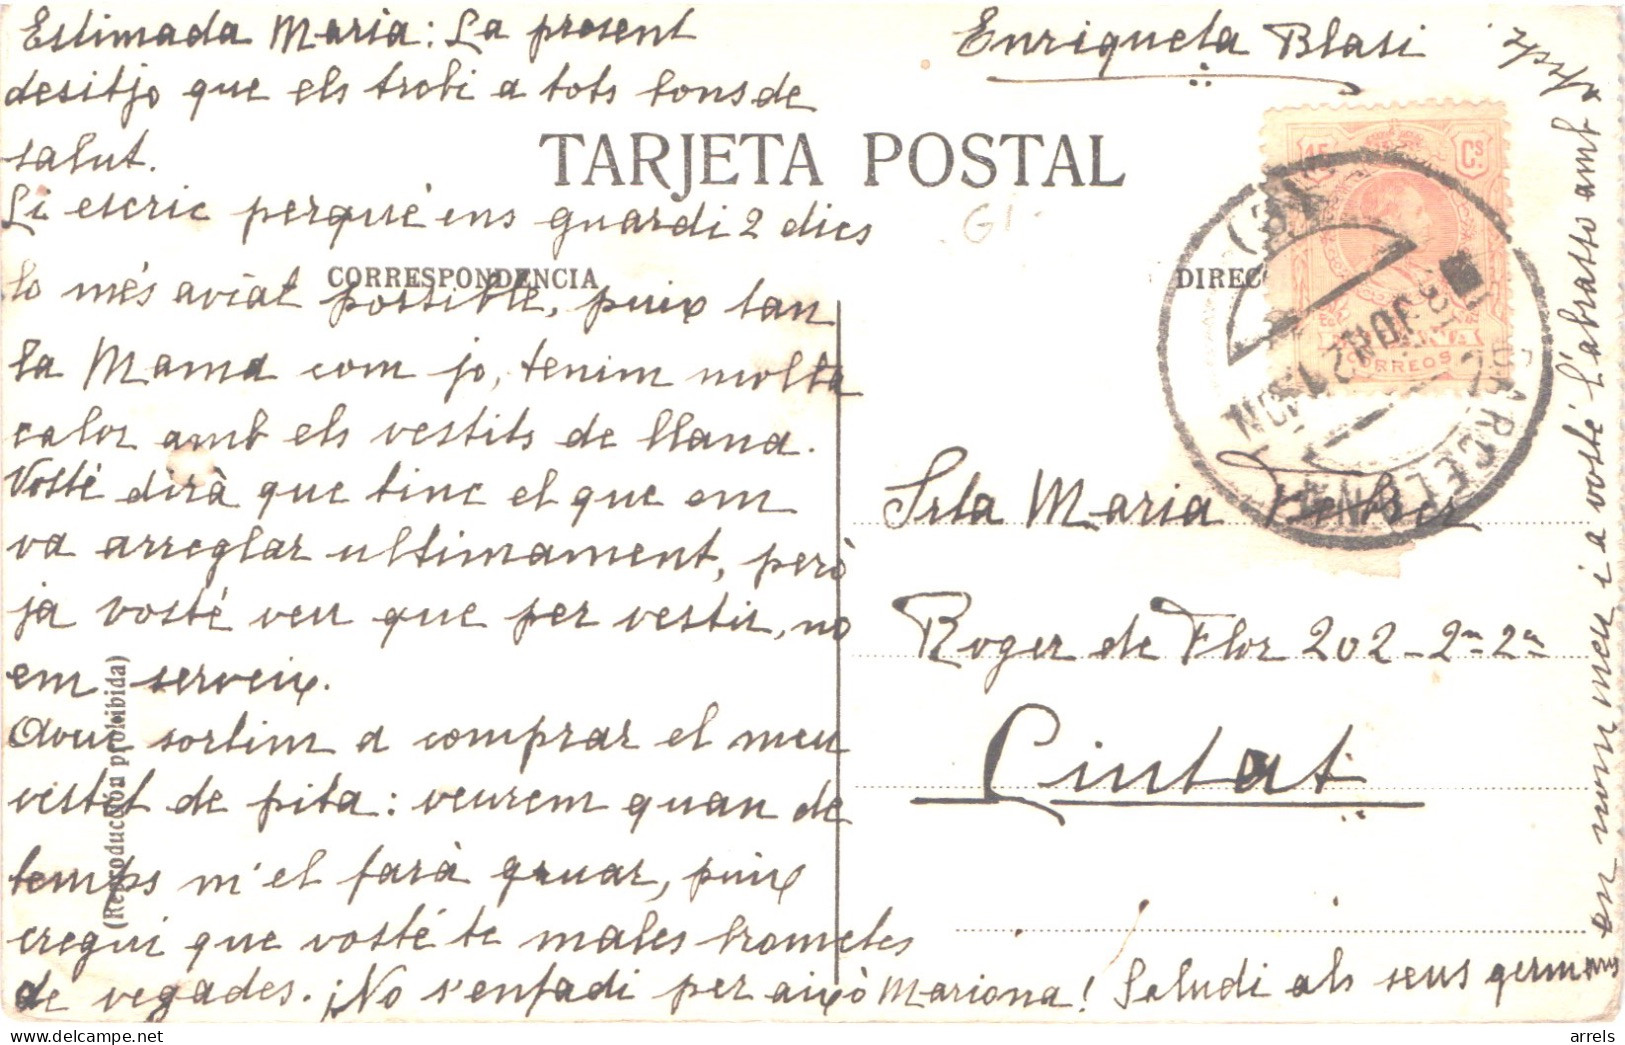 Estimada Maria: La present
desitjo que els trobi a tots bons de
salut.
Li escric perquè ens guardi 2 dies
lo més aviat possible, puix tan
la Mama com jo, tenim molta
calor amb els vestits de llana.
Vosté dirà que tinc el que em
va arreglar ultimament, però
ja vosté veu que per vestir, no
em serveix.
Avui sortim a comprar el meu
vestit de pita: veurem quan de
temps m'el farà gruar, puix
cregui que vosté te males brometes
de vegades. ¡No s'enfadi per aixó Mariona! Saludi als seus germans
en nom meu i a vosté l'abrasso amb
Enriqueta Blasi
TARJETA POSTAL
CORRESPONDENCIA
DIREC
(Reproducción prohibida)
15 Cs.
CORREOS
BARCELONA
Srta Maria Febrer
Roger de Flor 202-2n-2a
Ciutat